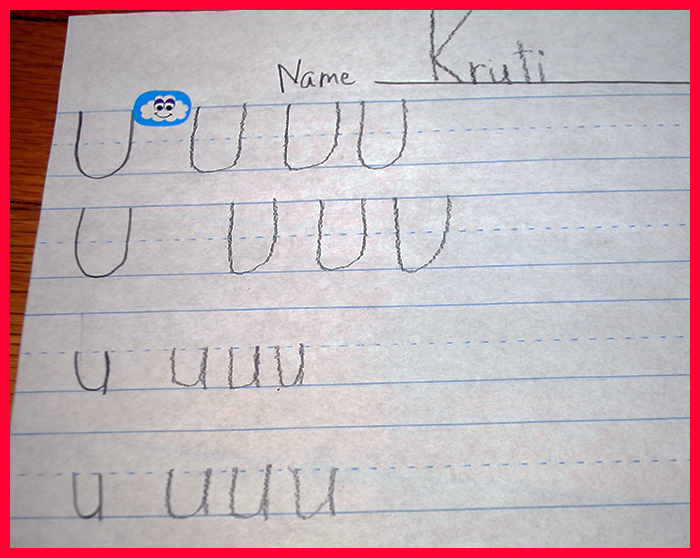 Name Kruti
U U U U
U U U U
u u u u
u u u u